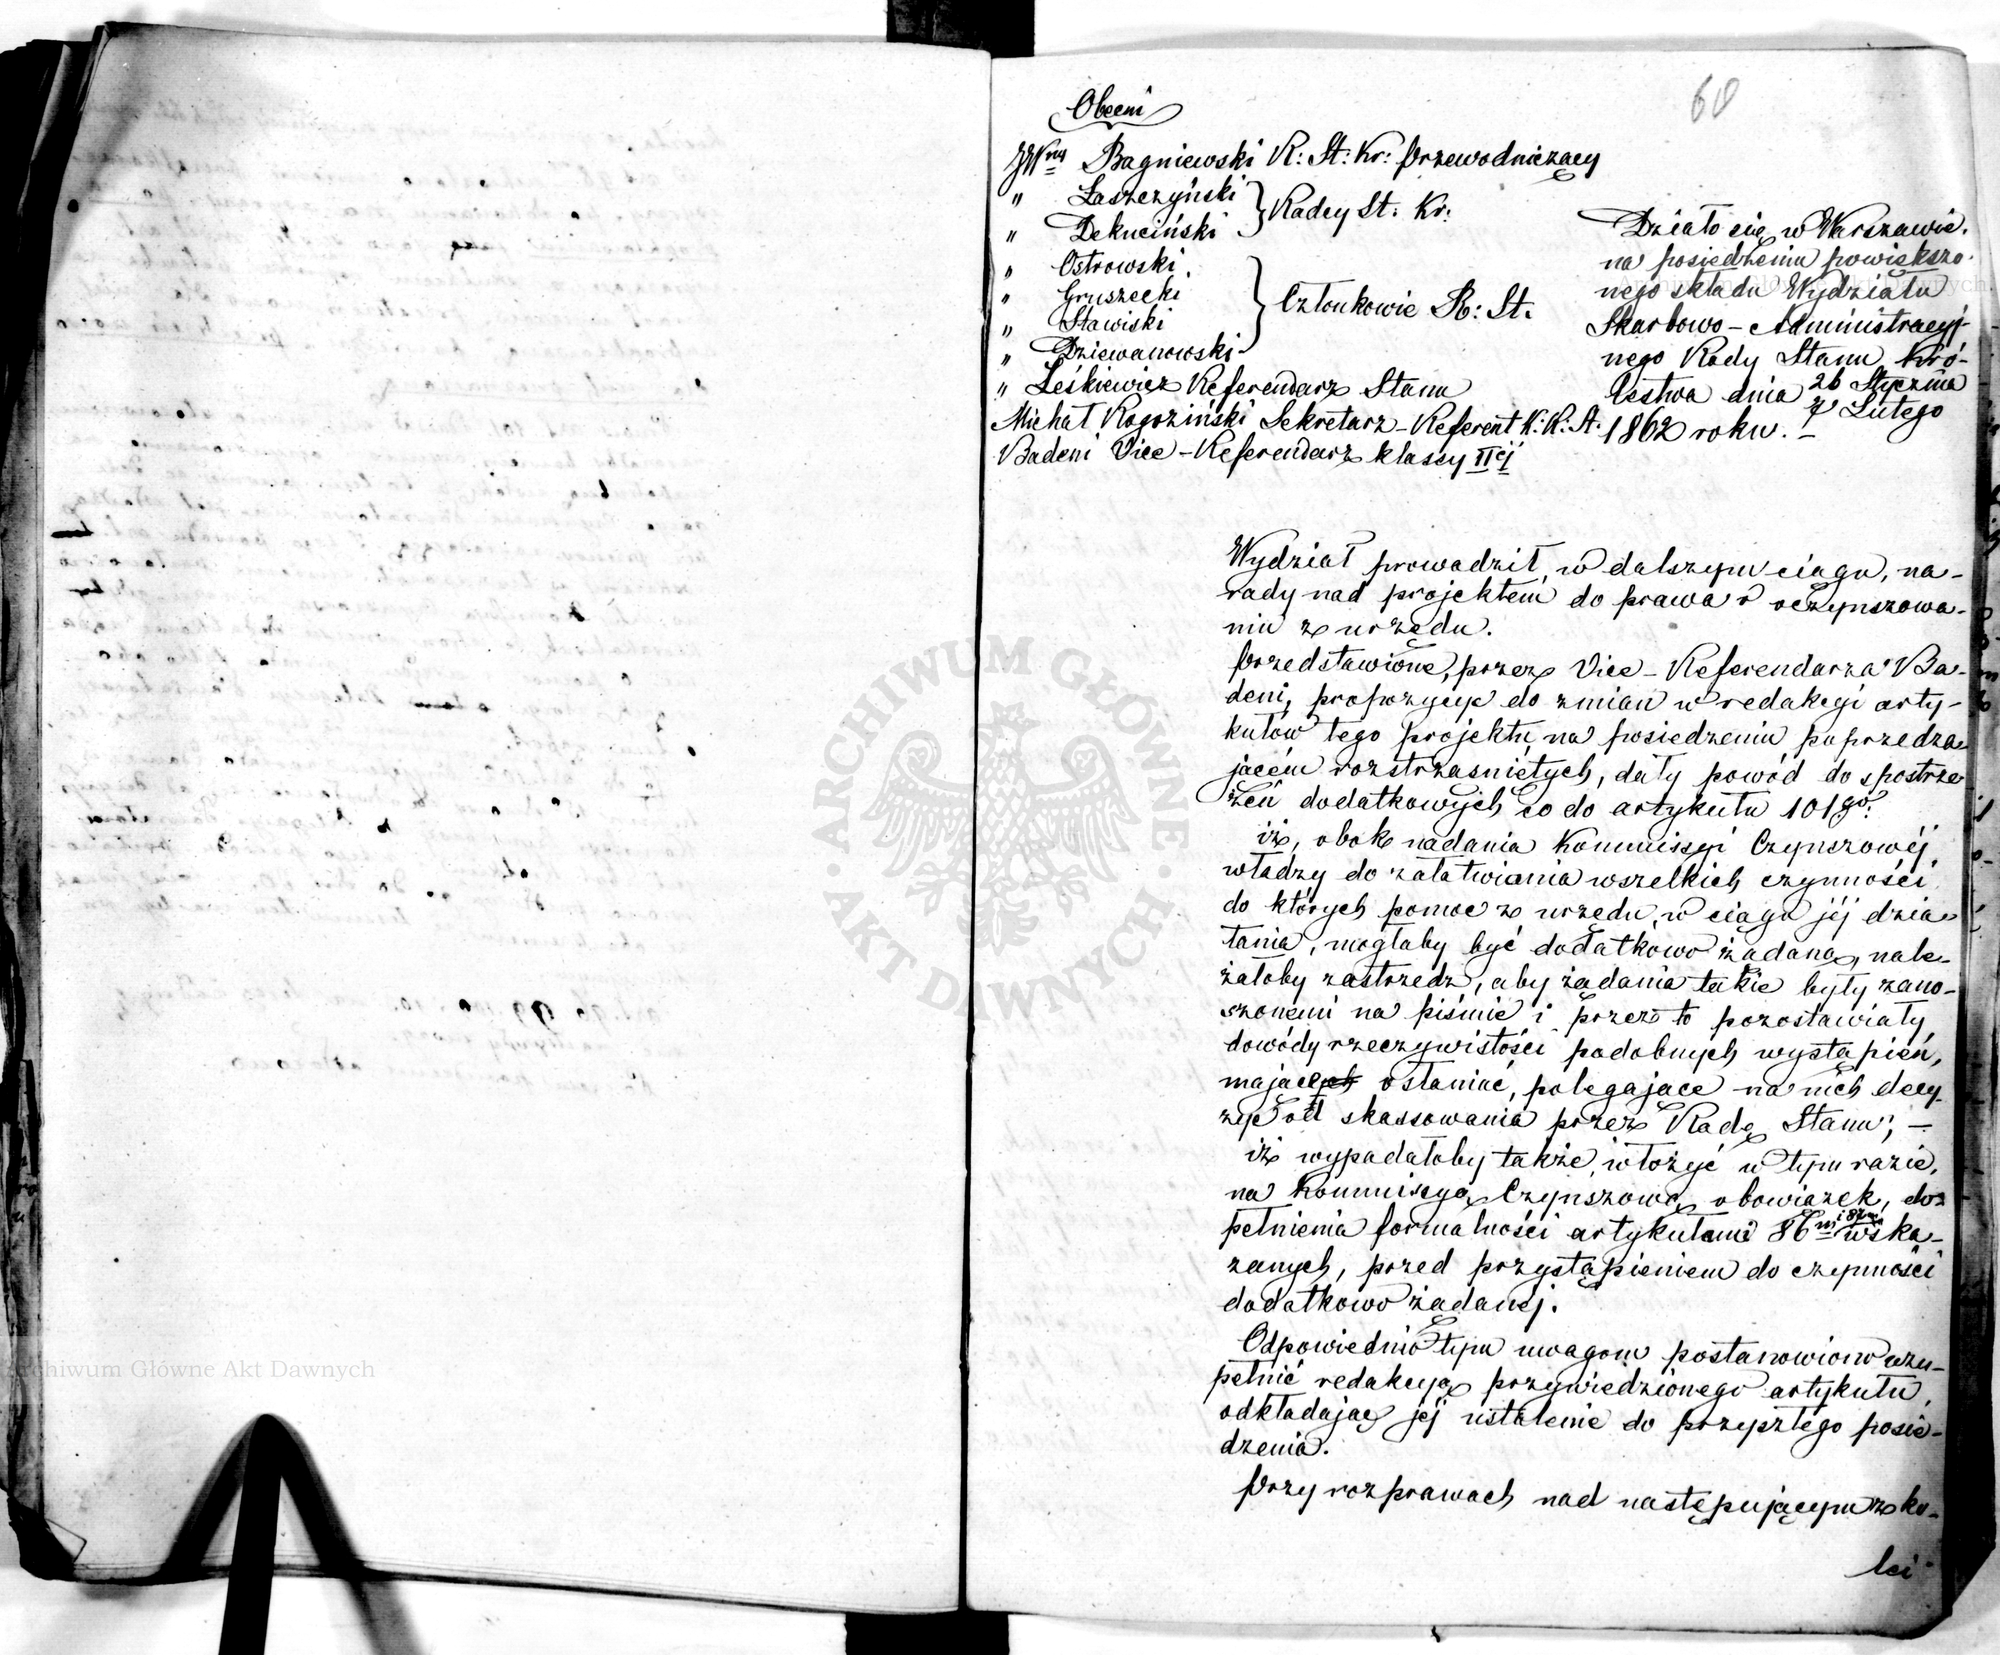 60
Obecni
JWny Bagniewski R: St: Kr: Przewodniczący
" Łaszczyński
" Dekuciński
Radcy St: Kr:
" Ostrowski
" Gruszecki
" Stawiski
" Dziewanowski
Członkowie R: St.
" Leśkiewicz Referendarz Stanu
Michał Rogoziński Sekretarz-Referent K.K.A.
Badeni Vice-Referendarz klassy IIej
Działo się w Warszawie
na posiedzeniu powiększo-
nego składu Wydziału
Skarbowo-Administracyj-
nego Rady Stanu Kró-
lestwa dnia 26 Stycznia
7 Lutego
1862 roku.
Wydział prowadził, w dalszym ciągu, na-
rady nad projektem do prawa o oczynszowa-
niu z urzędu.
Przedstawione, przez Vice-Referendarza Ba-
deni, propozycye do zmian w redakcyi arty-
kułów tego projektu na posiedzeniu poprzedza-
jącém roztrząśniętych, dały powód do spostrze-
żeń dodatkowych co do artykułu 101go.
iż, obok nadania Kommissyi Czynszowéj,
władzy do załatwiania wszelkich czynności
do których pomoc z urzędu, w ciągu jéj dzia-
łania, mogłaby być dodatkowo żądana, nale-
żałoby zastrzedz, aby żądania takie były zano-
szonemi na piśmie i przez to pozostawiały
dowody rzeczywistości podobnych wystąpień,
mające osłaniać, polegające na nich decy-
zye od skassowania przez Radę Stanu; —
iż wypadałoby także, włożyć w tym razie,
na Kommissyą Czynszową, obowiązek, do-
pełnienia formalności artykułami 86m i 87m wska-
zanych, przed przystąpieniem do czynności
dodatkowo żądanéj.
Odpowiednio tym uwagom postanowiono uzu-
pełnić redakcyą przywiedzionego artykułu,
odkładając jéj ustalenie do przyszłego posie-
dzenia.
Przy rozprawach nad następującym z ko-
lei
ARCHIWUM GŁÓWNE · AKT DAWNYCH ·
Archiwum Główne Akt Dawnych